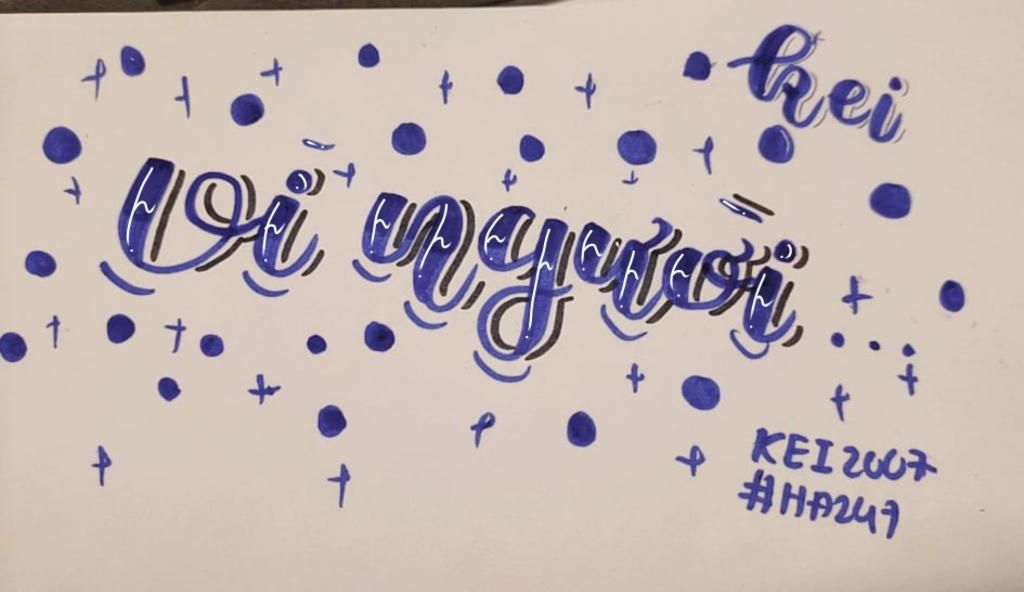 kei
vì người...
KEI2007
#HA247